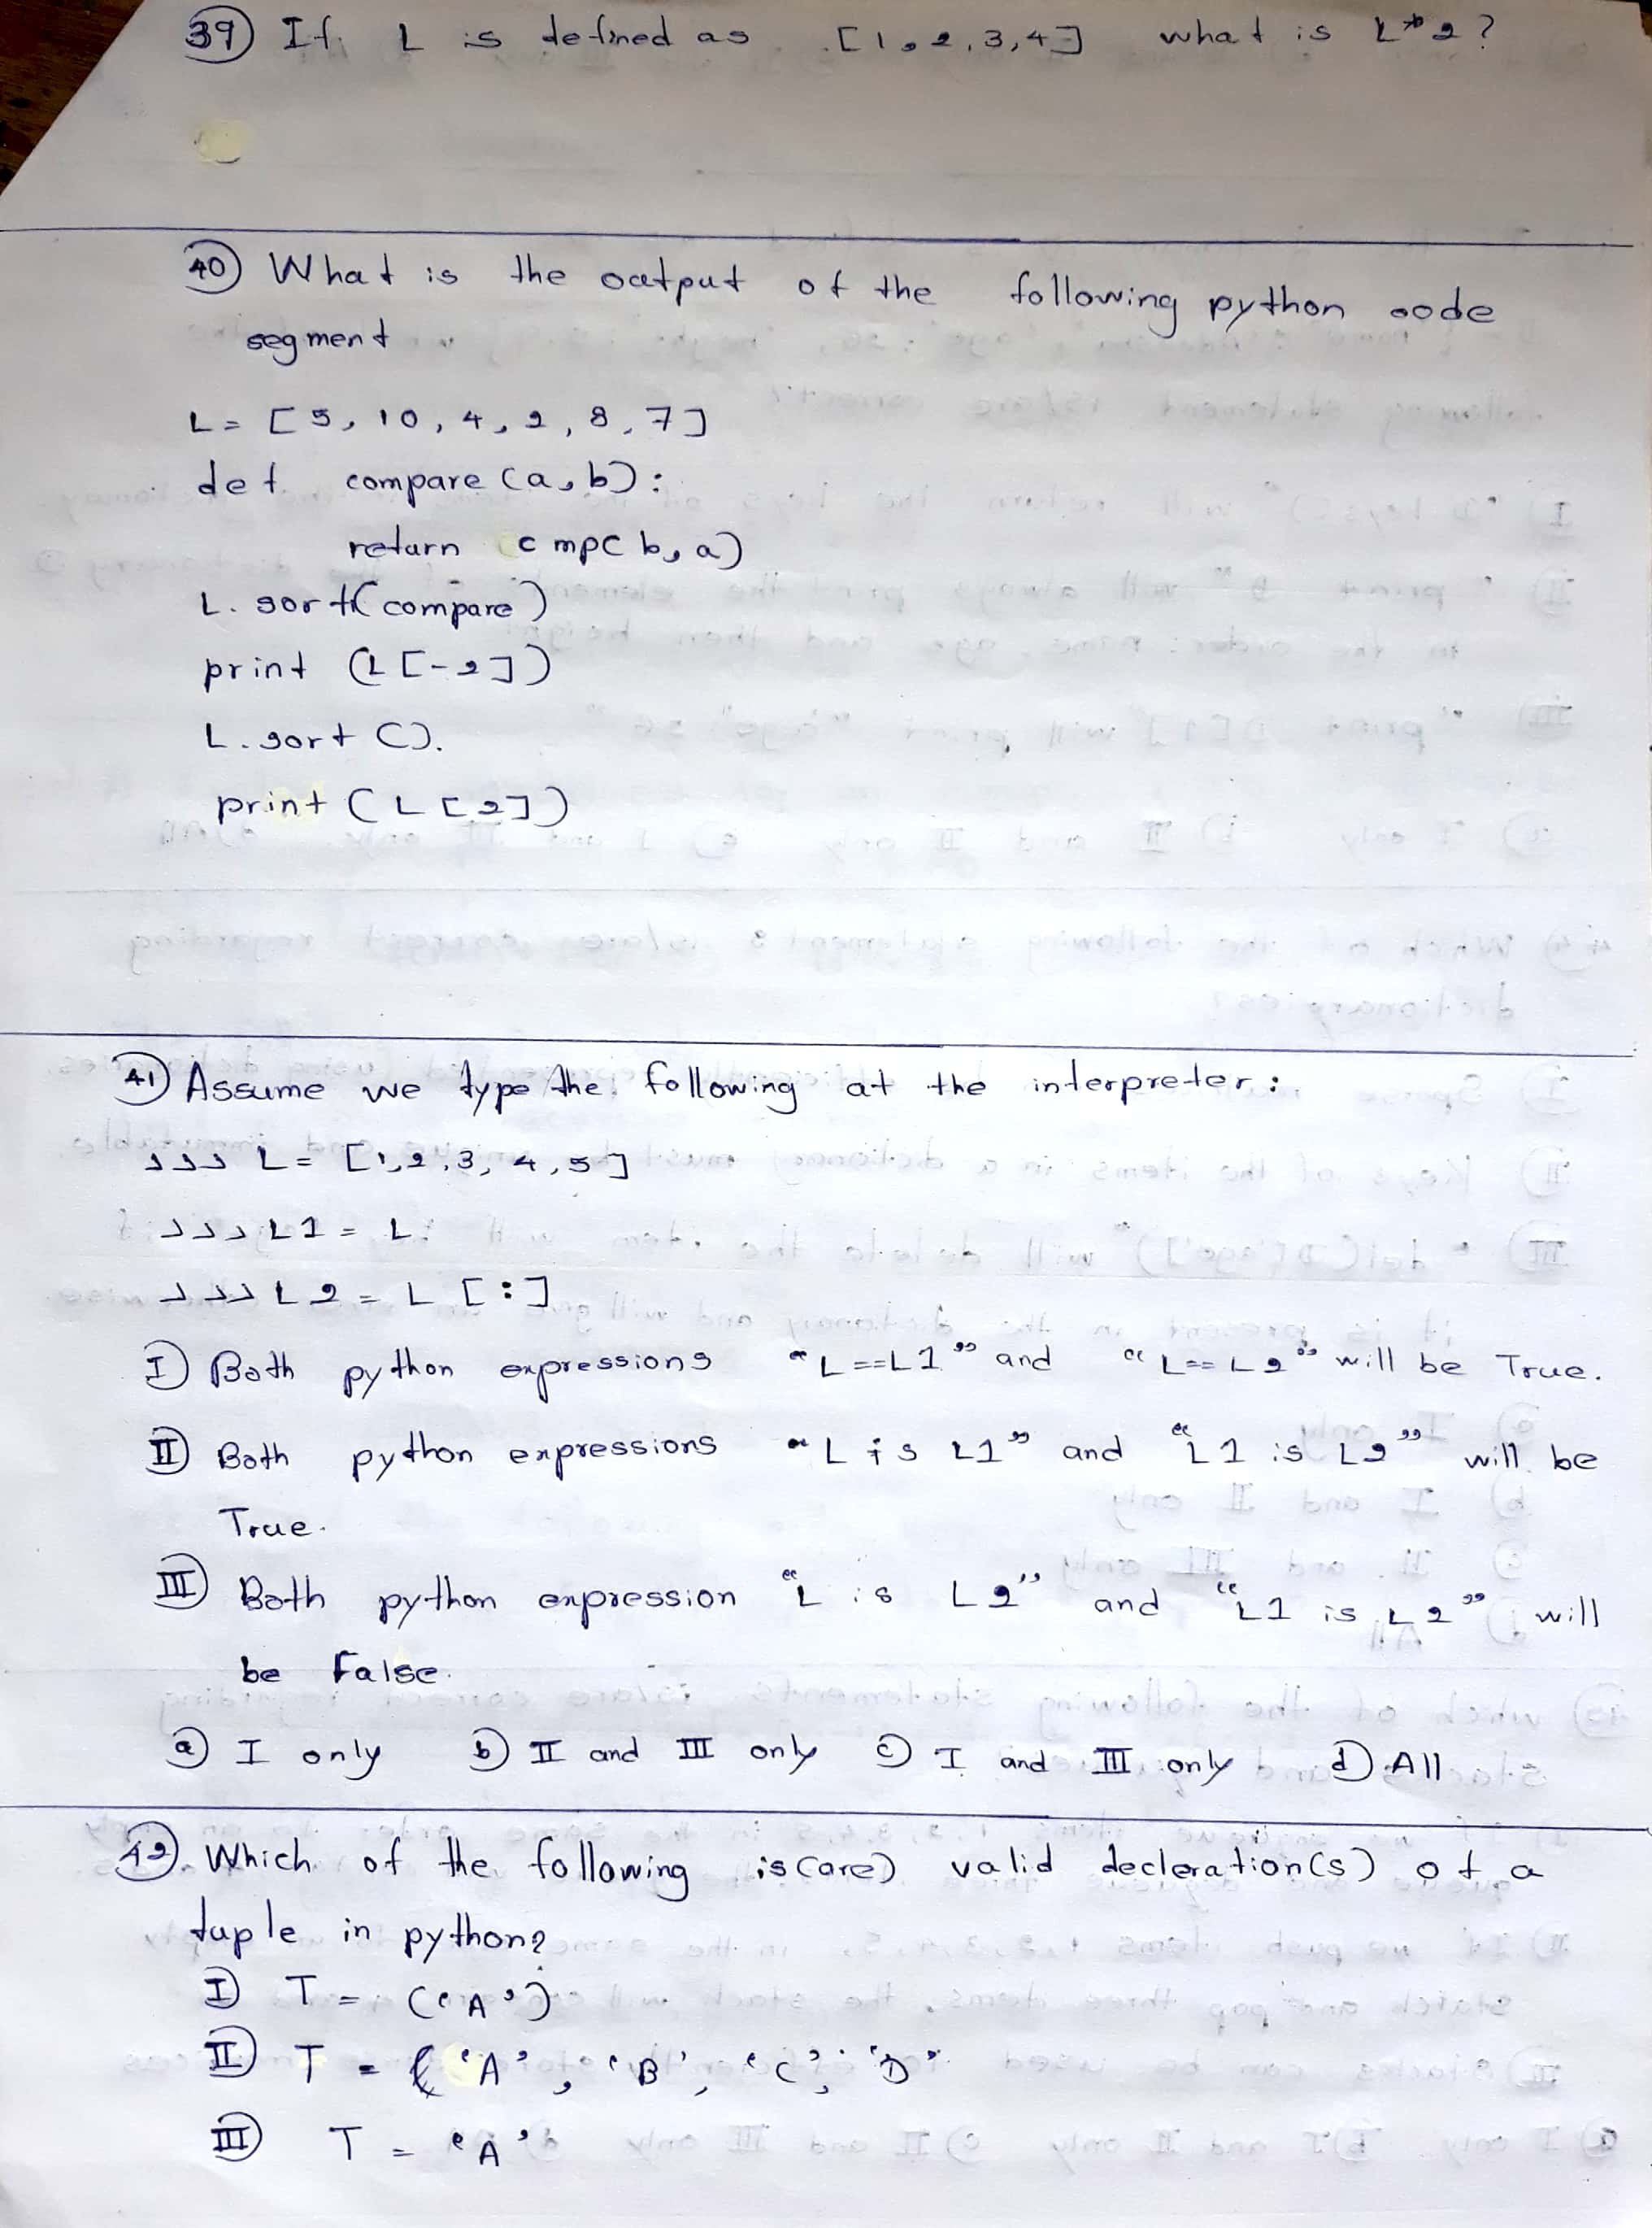 39) If L is defined as [1,2,3,4] what is L*2?
40) What is the output of the following python code
segment
L = [5, 10, 4, 2, 8, 7]
def compare (a,b):
return cmp(b,a)
L.sort(compare)
print (L[-2])
L.sort ().
print (L[2])
41) Assume we type the following at the interpreter:
>>> L = [1,2,3,4,5]
>>> L1 = L
>>> L2 = L [:]
I) Both python expressions "L==L1" and "L==L2" will be True.
II) Both python expressions "L is L1" and "L1 is L2" will be
True.
III) Both python expression "L is L2" and "L1 is L2" will
be False.
a) I only b) II and III only c) I and III only d) All
42) Which of the following is(are) valid decleration(s) of a
tuple in python?
I) T = ('A')
II) T = 'A', 'B', 'C', 'D'
III) T = 'A'